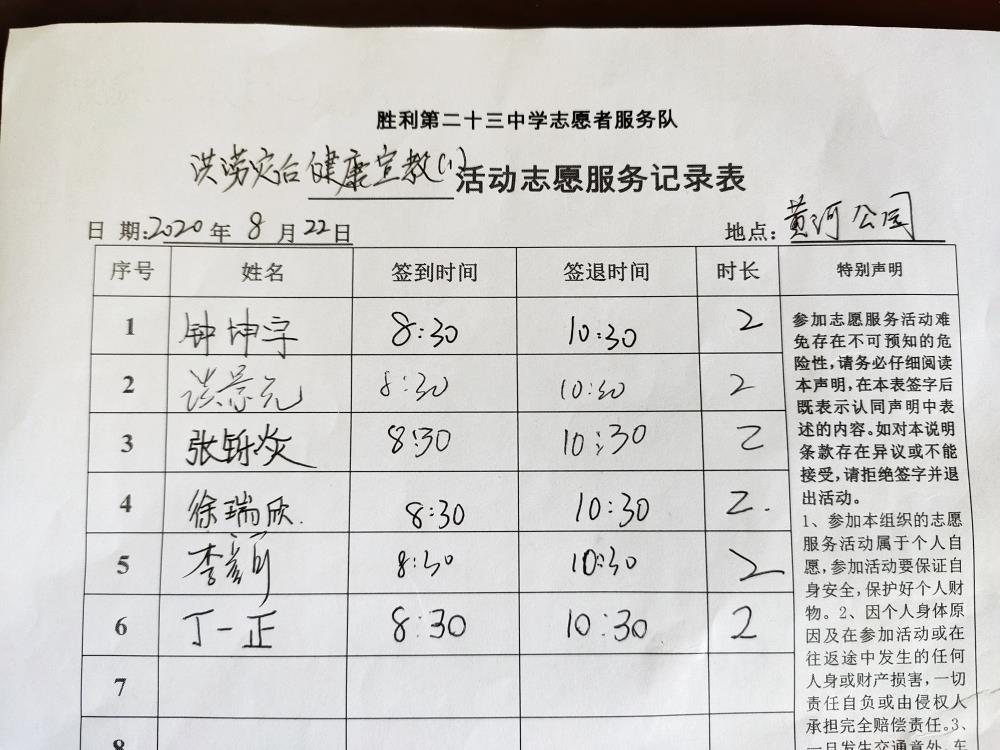 胜利第二十三中学志愿者服务队
洪涝灾后健康宣教(1)活动志愿服务记录表
日 期:2020年 8 月22日 地点:黄河公园
序号 姓名 签到时间 签退时间 时长 特别声明
1 钟坤宇 8:30 10:30 2
2 洪景元 8:30 10:30 2
3 张铄炎 8:30 10:30 2
4 徐瑞欣. 8:30 10:30 2.
5 李 8:30 10:30 2
6 丁一正 8:30 10:30 2
7
8
参加志愿服务活动难
免存在不可预知的危
险性,请务必仔细阅读
本声明,在本表签字后
既表示认同声明中表
述的内容。如对本说明
条款存在异议或不能
接受,请拒绝签字并退
出活动。
1、参加本组织的志愿
服务活动属于个人自
愿,参加活动要保证自
身安全,保护好个人财
物。2、因个人身体原
因及在参加活动或在
往返途中发生的任何
人身或财产损害,一切
责任自负或由侵权人
承担完全赔偿责任。3、
一旦发生交通意外,车